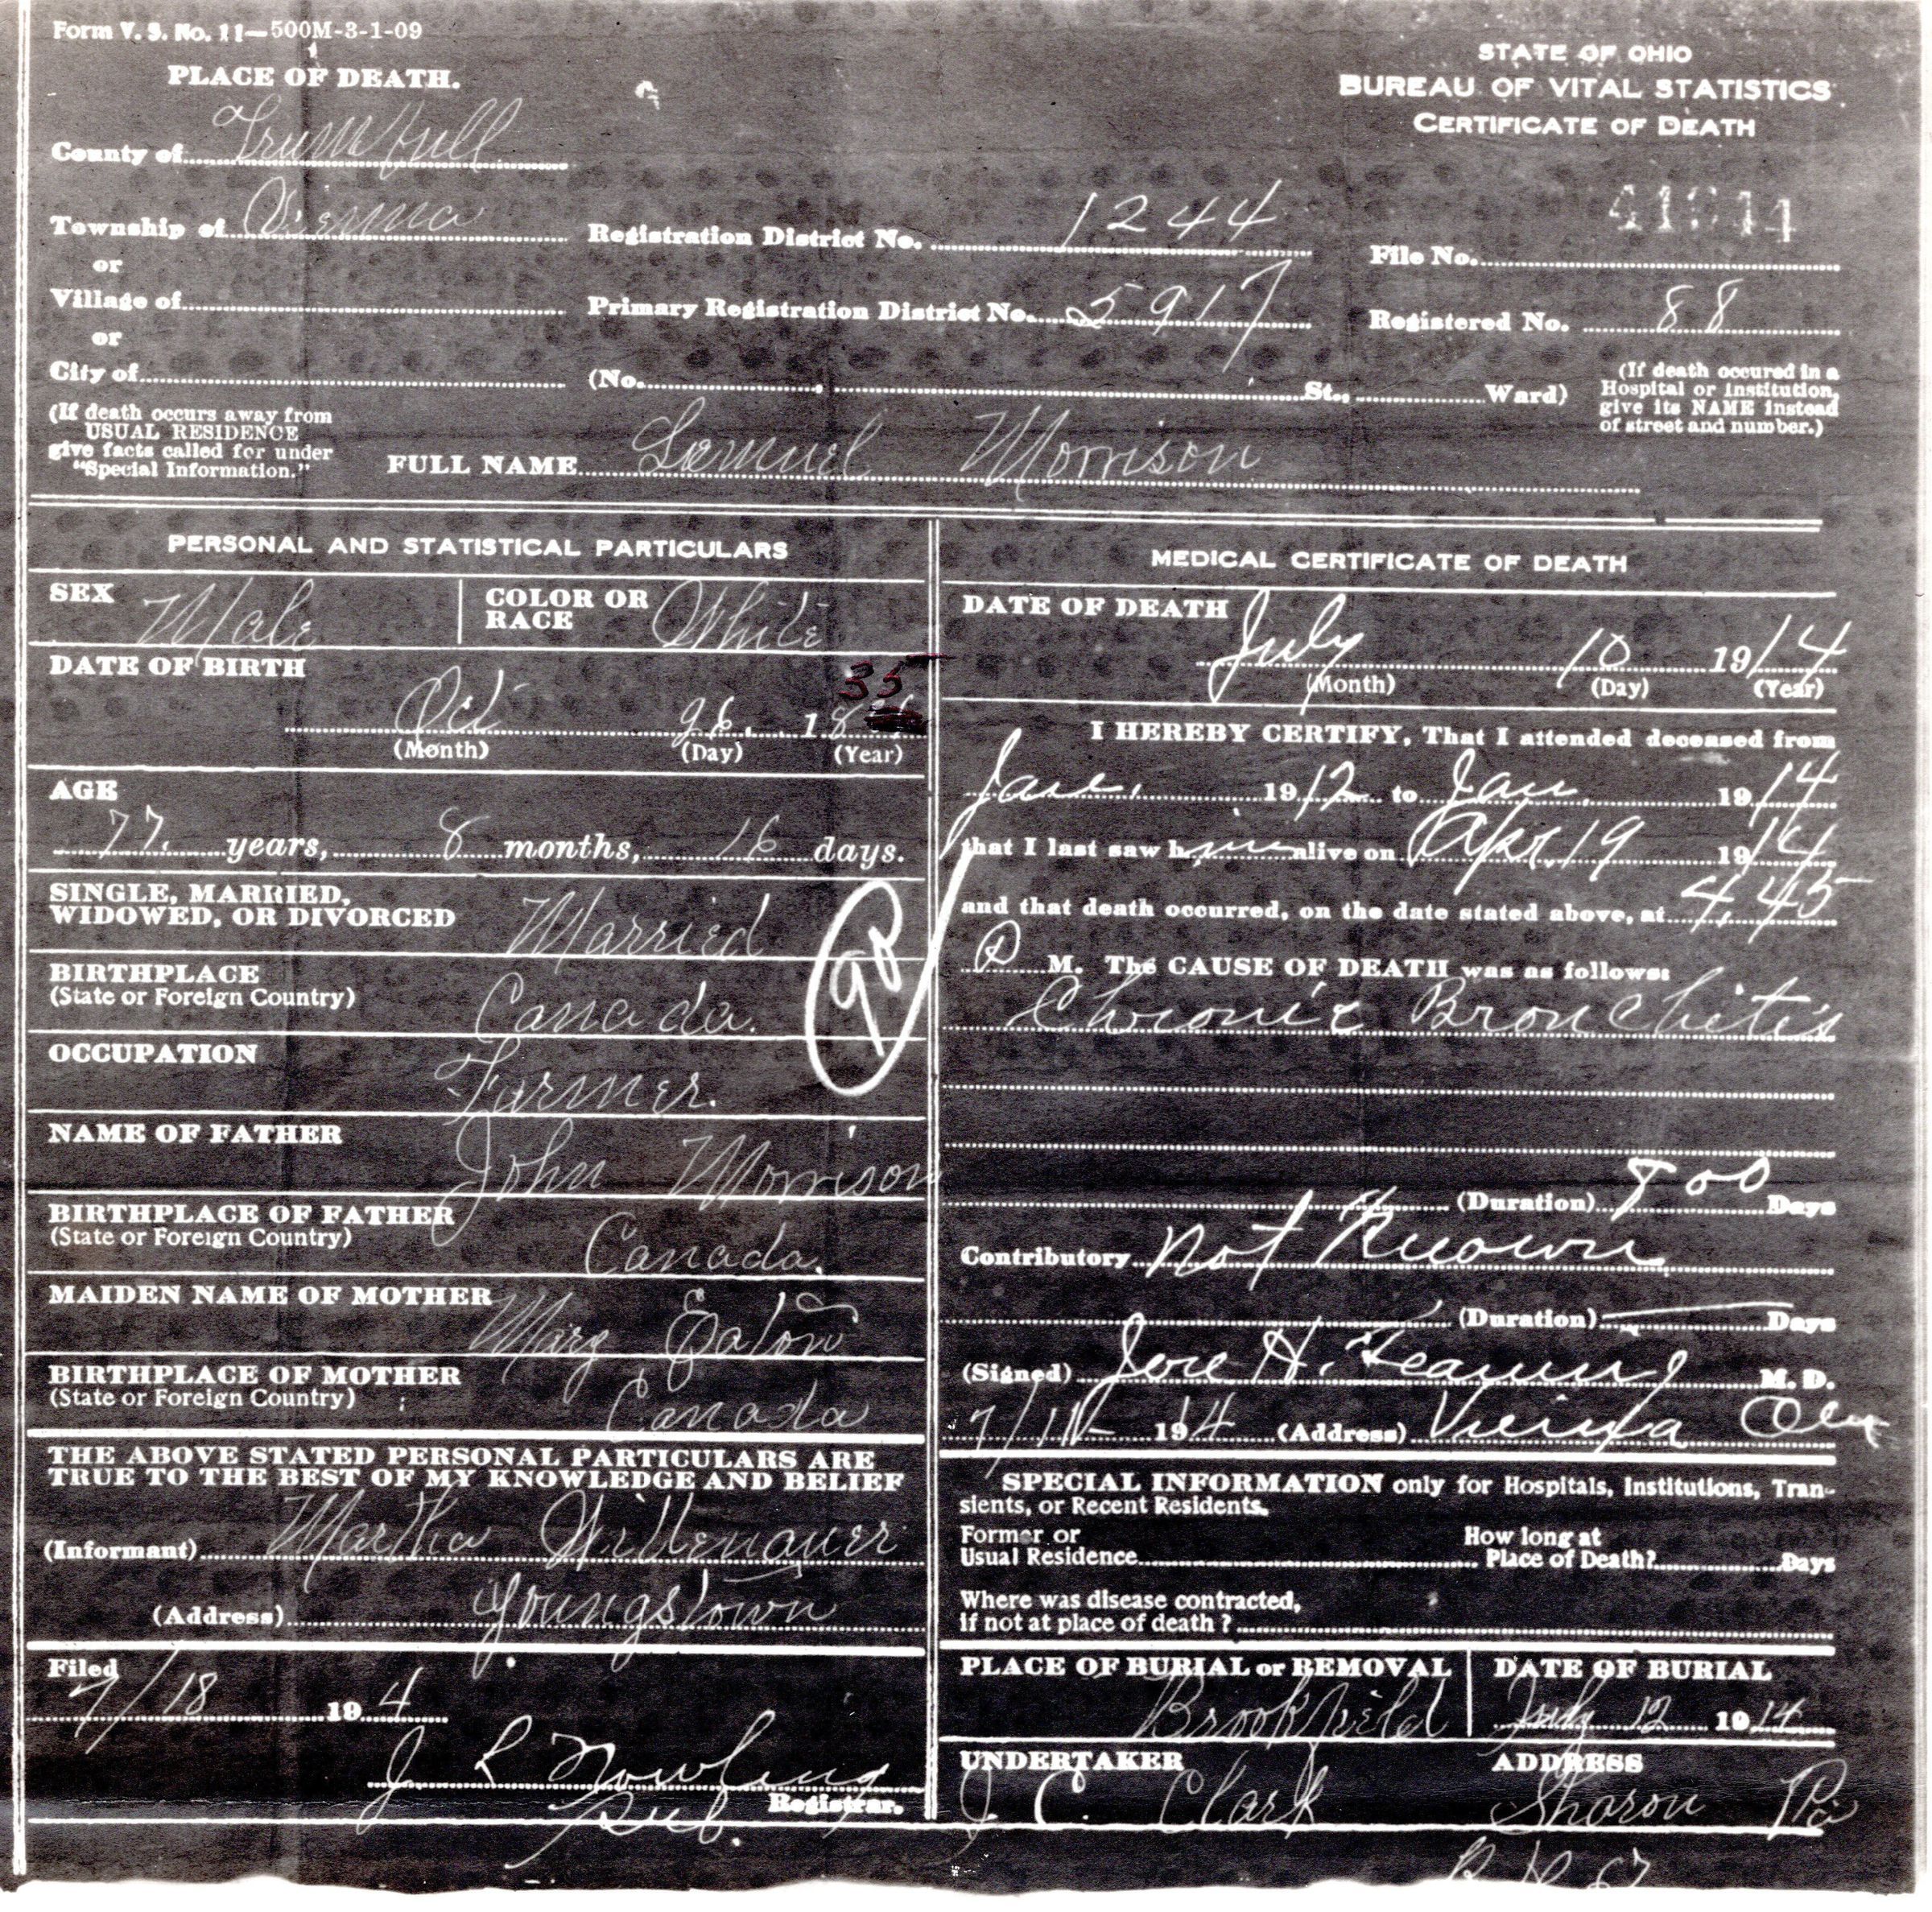 Form V. S. No. 11—500M-3-1-09
STATE OF OHIO
BUREAU OF VITAL STATISTICS
CERTIFICATE OF DEATH
PLACE OF DEATH.
County of Trumbull
Township of Vienna
Registration District No. 1244
File No.
or
Village of
Primary Registration District No. 5917
Registered No. 88
or
City of
(No. , St., Ward)
(If death occured in a
Hospital or institution,
give its NAME instead
of street and number.)
(If death occurs away from
USUAL RESIDENCE
give facts called for under
"Special Information."
FULL NAME Lemuel Morrison
PERSONAL AND STATISTICAL PARTICULARS
SEX Male
COLOR OR RACE White
DATE OF BIRTH
35
Oct 26. 18
(Month) (Day) (Year)
AGE
77 years, 8 months, 16 days.
SINGLE, MARRIED,
WIDOWED, OR DIVORCED Married
BIRTHPLACE
(State or Foreign Country) Canada.
OCCUPATION
Farmer.
NAME OF FATHER
John Morrison
BIRTHPLACE OF FATHER
(State or Foreign Country) Canada.
MAIDEN NAME OF MOTHER
Mary Eaton
BIRTHPLACE OF MOTHER
(State or Foreign Country) Canada
THE ABOVE STATED PERSONAL PARTICULARS ARE
TRUE TO THE BEST OF MY KNOWLEDGE AND BELIEF
(Informant) Martha
(Address) Youngstown
Filed
7/18 19 4
J R Nowling
Registrar.
MEDICAL CERTIFICATE OF DEATH
DATE OF DEATH
July 10 1914
(Month) (Day) (Year)
I HEREBY CERTIFY, That I attended deceased from
Jan. 1912 to Jan. 1914
that I last saw him alive on Apr. 19 1914
and that death occurred, on the date stated above, at 4,45
P M. The CAUSE OF DEATH was as follows:
Chronic Bronchitis
90
(Duration) 800 Days
Contributory Not Known
(Duration) Days
(Signed) H. M. D.
1914 (Address) Vienna
SPECIAL INFORMATION only for Hospitals, Institutions, Tran-
sients, or Recent Residents.
Former or
Usual Residence
How long at
Place of Death? Days
Where was disease contracted,
if not at place of death?
PLACE OF BURIAL or REMOVAL
Brookfield
DATE OF BURIAL
July 12 1914
UNDERTAKER
J. C. Clark
ADDRESS
Sharon Pa